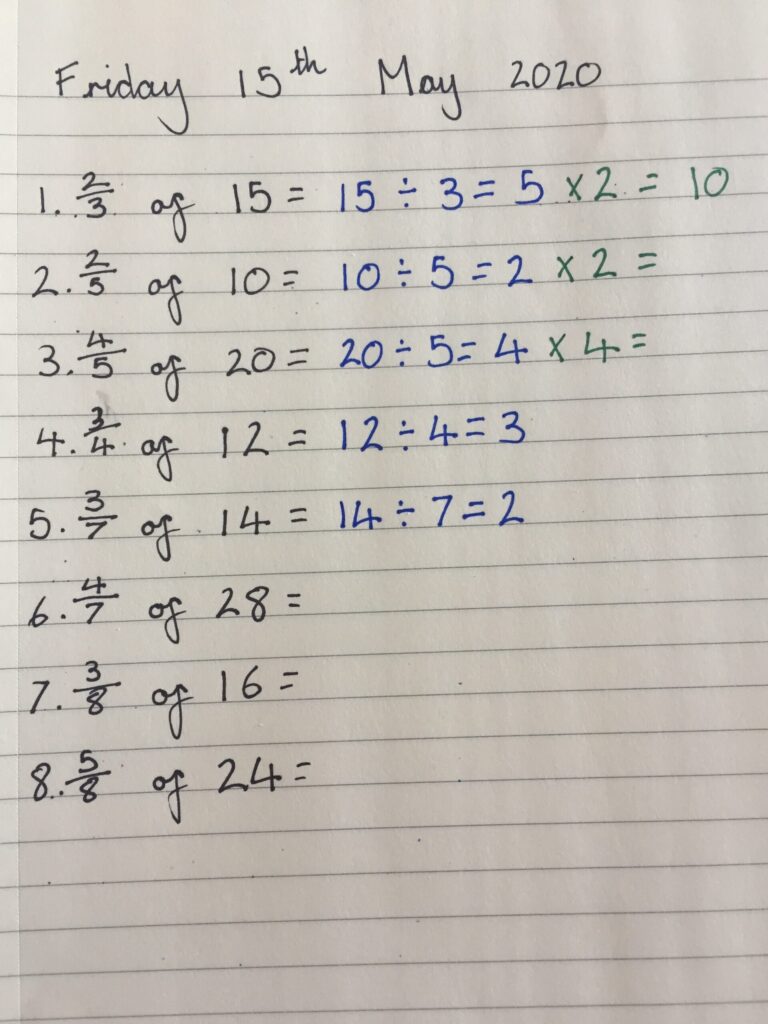 Friday 15th May 2020
1. 2/3 of 15 = 15 ÷ 3 = 5 × 2 = 10
2. 2/5 of 10 = 10 ÷ 5 = 2 × 2 =
3. 4/5 of 20 = 20 ÷ 5 = 4 × 4 =
4. 3/4 of 12 = 12 ÷ 4 = 3
5. 3/7 of 14 = 14 ÷ 7 = 2
6. 4/7 of 28 =
7. 3/8 of 16 =
8. 5/8 of 24 =